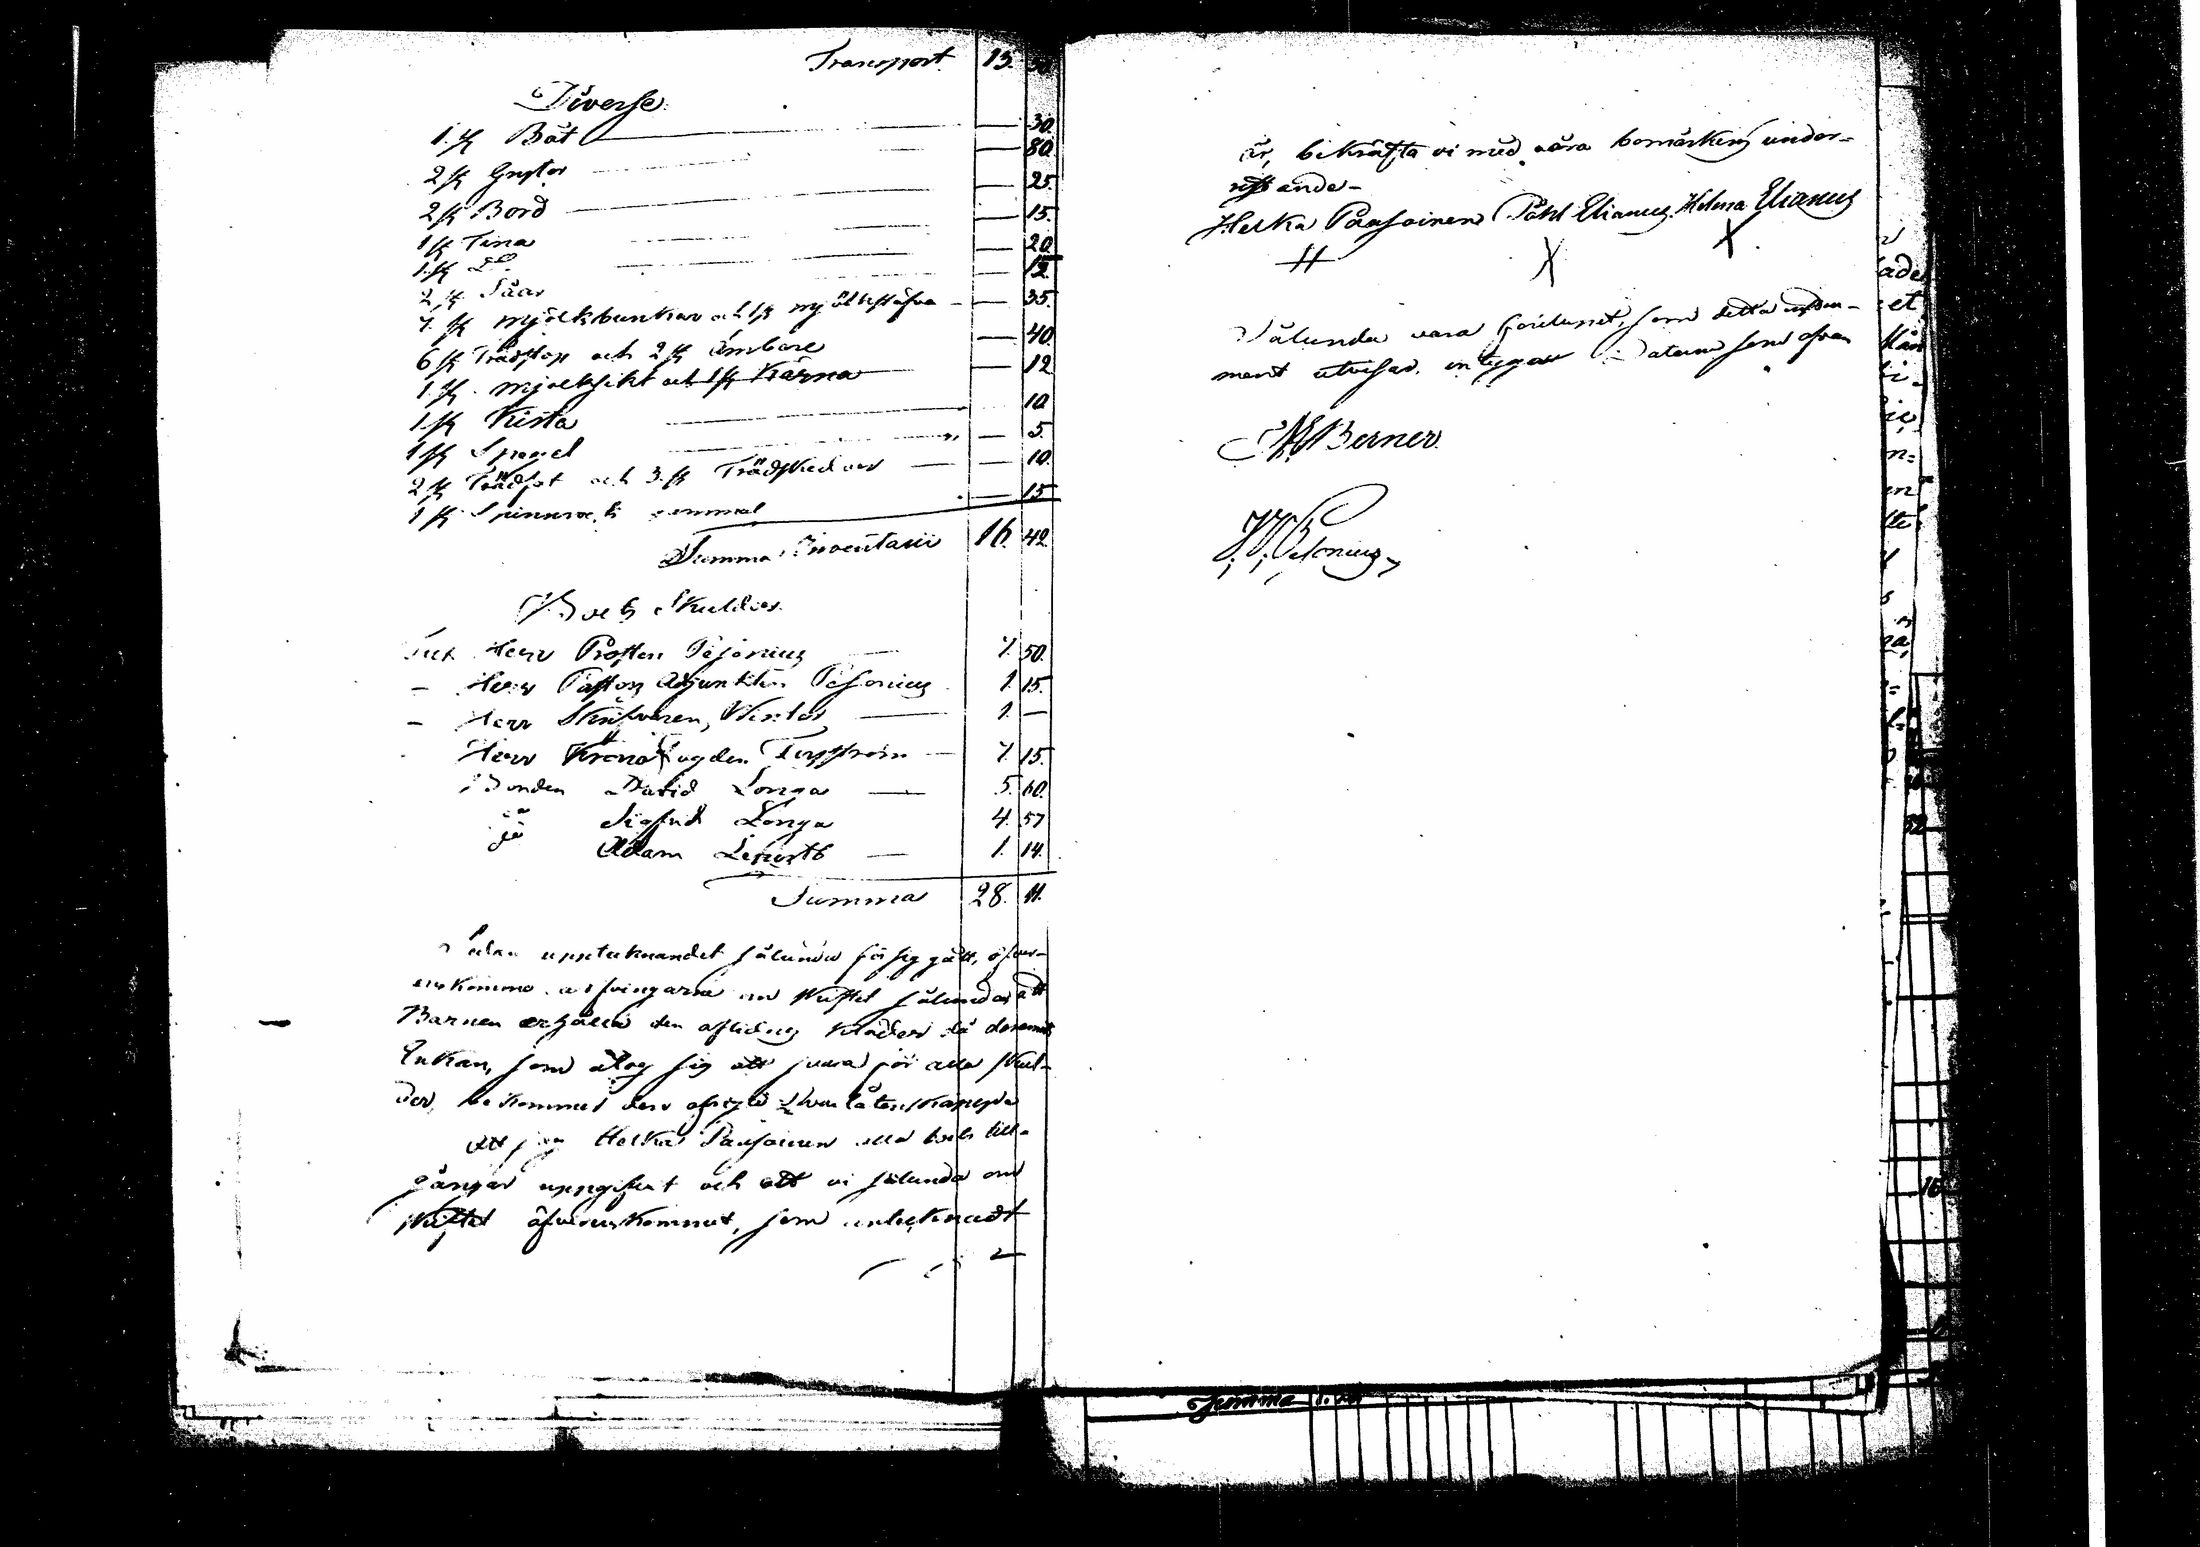 Transport 13.
Diverse
1. st Båt — 30.
2 st Grytor — 80.
2 st Bord — 25.
1 st Tina — 15.
1. st D:o — 20.
2 st Såar — 12.
7. st mjölkbunkar och 1 st — 35.
6 st Trädstop och 2 st Ämbare — 40.
1 st. mjölksikt och 1 st Kärna — 12
1. st Kista 10.
1 st Spegel — 5.
2 st Trädfat och 3. st Trädskedar — 10.
1 st Spinnrock gammal — 15
Summa Inventarii 16. 42.
Boets Skulder.
Till Herr Prosten Pesonius 7. 50.
— Herr Pastors Adjunkten Pesonius 1. 15.
— Herr Skrifvaren, Winter — 1. —
Herr Kronofogden — 7. 15.
Bonden David Longa — 5. 60.
Sigfrid Longa 4. 57
Adam — 1. 14.
Summa 28. 11.
Sedan upptecknandet sålunda för sig gått, öfver-
enskommo arfvingarne om skiftet sålunda, att
Barnen erhålla den aflidnes kläder då deremot
Enkan, som åtog sig att svara för alla skul-
der, bekommer den öfriga qvarlåtenskapen.
Att jag Helka Paasoinen alla boets till-
gångar uppgifvit och att vi sålunda om
skiftet öfverenskommit, som antecknadt
är, bekräfta vi med våra bomärken under-
Helka Paasoinen Påhl Elianus Helena Elianus
H X X
Sålunda vara förelupet, som detta instru-
ment utvisar, intygar Datum som ofvan
Berner.
J. J. Pesonius
Summa